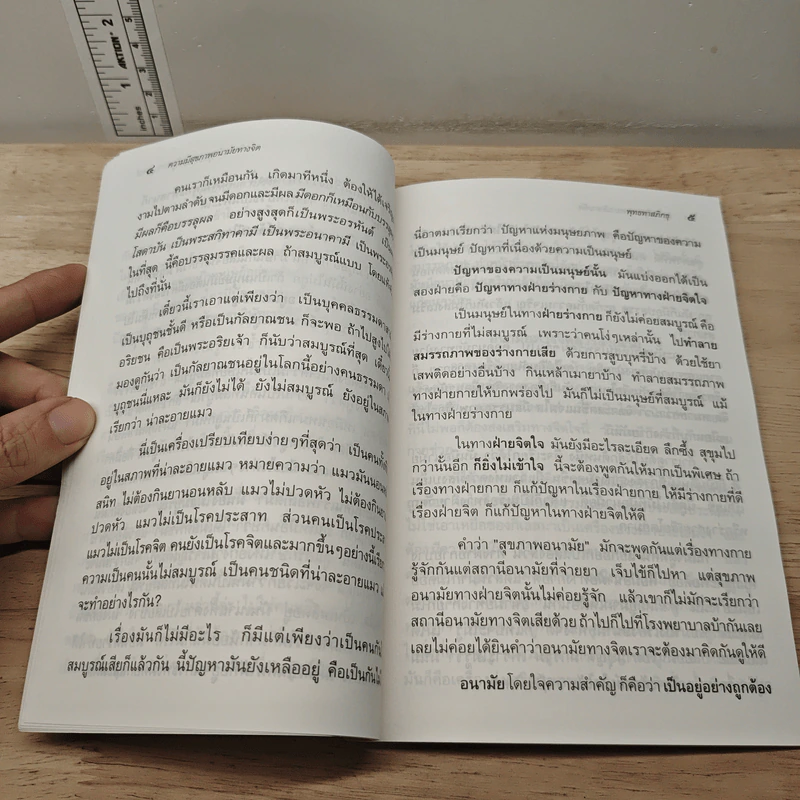 inches 1 2
AKTION
๔ ความมีสุขภาพอนามัยทางจิต
คนเราก็เหมือนกัน เกิดมาทีหนึ่ง ต้องให้ได้
งามไปตามลำดับ จนมีดอกและมีผล มีดอกก็เหมือนกับบรรลุ
มีผลก็คือบรรลุผล อย่างสูงสุดก็เป็นพระอรหันต์
โสดาบัน เป็นพระสกิทาคามี เป็นพระอนาคามี เป็นพระ
ในที่สุด นี้คือบรรลุมรรคและผล ถ้าสมบูรณ์แบบ โดย
ไปถึงที่นั่น
เดี๋ยวนี้เราเอาแต่เพียงว่า เป็นบุคคลธรรมดา
เป็นบุถุชนชั้นดี หรือเป็นกัลยาณชน ก็จะพอ ถ้าไปสูง
อริยชน คือเป็นพระอริยเจ้า ก็นับว่าสมบูรณ์ที่สุด เดี๋ยว
มองดูกันว่า เป็นกัลยาณชนอยู่ในโลกนี้อย่างคนธรรมดา
บุถุชนนี่แหละ มันก็ยังไม่ได้ ยังไม่สมบูรณ์ ยังอยู่ใน
เรียกว่า น่าละอายแมว
นี้เป็นเครื่องเปรียบเทียบง่ายๆที่สุดว่า เป็นคน
อยู่ในสภาพที่น่าละอายแมว หมายความว่า แมวมันนอน
สนิท ไม่ต้องกินยานอนหลับ แมวไม่ปวดหัว ไม่ต้องกิน
ปวดหัว แมวไม่เป็นโรคประสาท ส่วนคนเป็นโรคประ
แมวไม่เป็นโรคจิต คนยังเป็นโรคจิตและมากขึ้นๆอย่างนี้เรีย
ความเป็นคนนั้นไม่สมบูรณ์ เป็นคนชนิดที่น่าละอายแมว
จะทำอย่างไรกัน?
เรื่องมันก็ไม่มีอะไร ก็มีแต่เพียงว่าเป็นคนกัน
สมบูรณ์เสียก็แล้วกัน นี้ปัญหามันยังเหลืออยู่ คือเป็นกัน
พุทธทาสภิกขุ ๕
นี่อาตมาเรียกว่า ปัญหาแห่งมนุษยภาพ คือปัญหาของความ
เป็นมนุษย์ ปัญหาที่เนื่องด้วยความเป็นมนุษย์
ปัญหาของความเป็นมนุษย์นั้น มันแบ่งออกได้เป็น
สองฝ่ายคือ ปัญหาทางฝ่ายร่างกาย กับ ปัญหาทางฝ่ายจิตใจ
เป็นมนุษย์ในทางฝ่ายร่างกาย ก็ยังไม่ค่อยสมบูรณ์ คือ
มีร่างกายที่ไม่สมบูรณ์ เพราะว่าคนโง่ๆเหล่านั้น ไปทำลาย
สมรรถภาพของร่างกายเสีย ด้วยการสูบบุหรี่บ้าง ด้วยใช้ยา
เสพติดอย่างอื่นบ้าง กินเหล้าเมายาบ้าง ทำลายสมรรถภาพ
ทางฝ่ายกายให้บกพร่องไป มันก็ไม่เป็นมนุษย์ที่สมบูรณ์ แม้
ในทางฝ่ายร่างกาย
ในทางฝ่ายจิตใจ มันยังมีอะไรละเอียด ลึกซึ้ง สุขุมไป
กว่านั้นอีก ก็ยิ่งไม่เข้าใจ นี้จะต้องพูดกันให้มากเป็นพิเศษ ถ้า
เรื่องทางฝ่ายกาย ก็แก้ปัญหาในเรื่องฝ่ายกาย ให้มีร่างกายที่ดี
เรื่องฝ่ายจิต ก็แก้ปัญหาในทางฝ่ายจิตให้ดี
คำว่า "สุขภาพอนามัย" มักจะพูดกันแต่เรื่องทางกาย
รู้จักกันแต่สถานีอนามัยที่จ่ายยา เจ็บไข้ก็ไปหา แต่สุขภาพ
อนามัยทางฝ่ายจิตนั้นไม่ค่อยรู้จัก แล้วเขาก็ไม่มักจะเรียกว่า
สถานีอนามัยทางจิตเสียด้วย ถ้าไปก็ไปที่โรงพยาบาลบ้ากันเลย
เลยไม่ค่อยได้ยินคำว่าอนามัยทางจิตเราจะต้องมาคิดกันดูให้ดี
อนามัย โดยใจความสำคัญ ก็คือว่า เป็นอยู่อย่างถูกต้อง